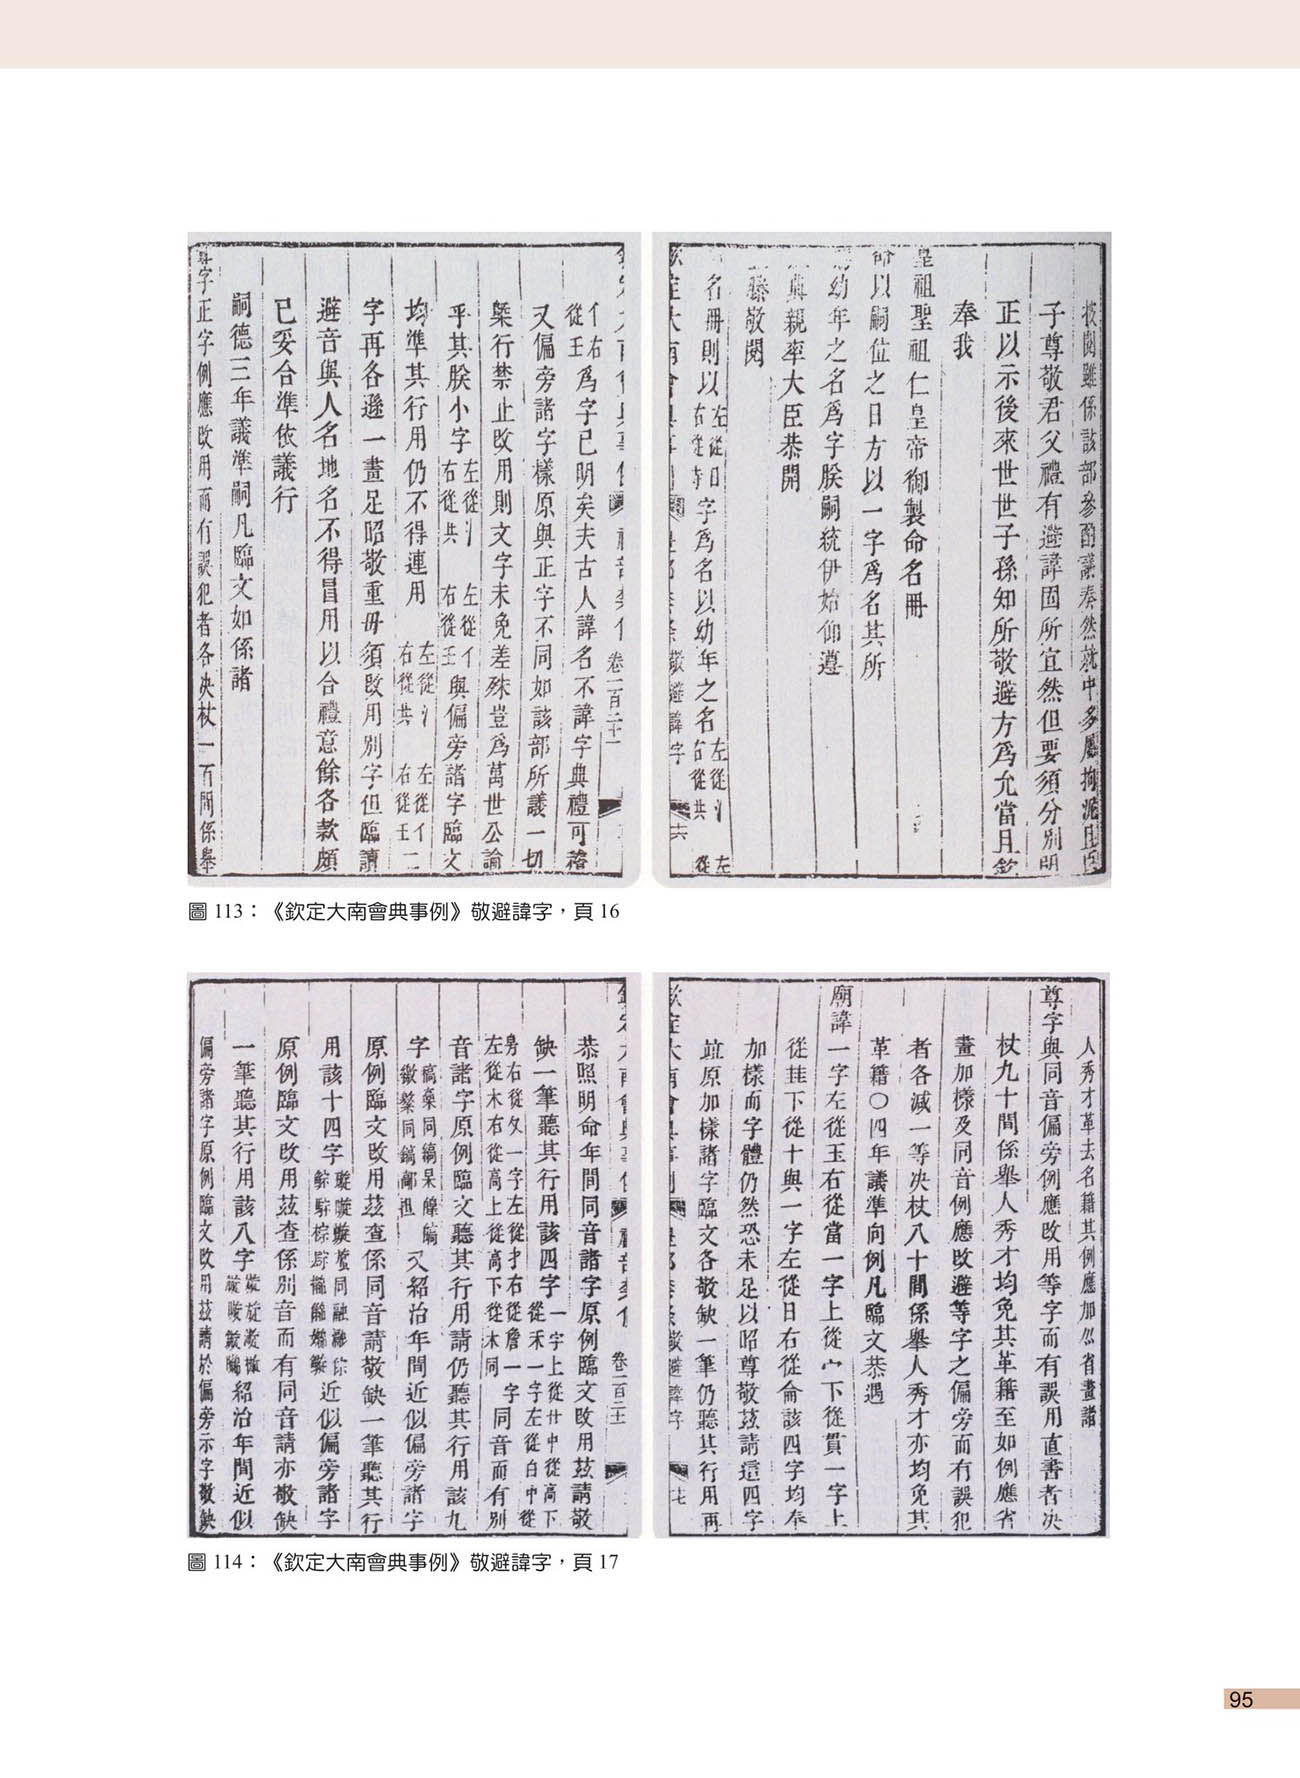 按閱雖係該部參酌議奏然就中多屬拘泥且臣
子尊敬君父禮有避諱固所宜然但要須分別明
正以示後來世世子孫知所敬避方為允當且欽
奉我
皇祖聖祖仁皇帝御製命名冊
命以嗣位之日方以一字爲名其所
幼年之名爲字朕嗣統伊始仰遵
典親率大臣恭開
縢敬閱
名冊則以左從日右從寺字爲名以幼年之名左從氵右從共左從
欽定大南會典事例 敬避諱字 十六
欽定大南會典事例 卷一百二十一
亻右從王爲字已明矣夫古人諱名不諱字典禮可稽
又偏旁諸字樣原與正字不同如該部所議一切
槩行禁止改用則文字未免差殊豈爲萬世公論
乎其朕小字左從氵右從共左從亻右從王與偏旁諸字臨文
均準其行用仍不得連用左從氵右從共左從亻右從王二
字再各遜一畫足昭敬重毋須改用別字但臨讀
避音與人名地名不得冒用以合禮意餘各款頗
已妥合準依議行
嗣德三年議準嗣凡臨文如係諸
尊字正字例應改用而有誤犯者各决杖一百間係舉
圖 113：《欽定大南會典事例》敬避諱字，頁 16
人秀才革去名籍其例應加《省畫諸
尊字與同音偏旁例應改用等字而有誤用直書者决
杖九十間係舉人秀才均免其革籍至如例應省
畫加樣及同音例應改避等字之偏旁而有誤犯
者各減一等决杖八十間係舉人秀才亦均免其
革籍○四年議準向例凡臨文恭遇
廟諱一字左從玉右從當一字上從宀下從貫一字上
從䒑下從十與一字左從日右從侖該四字均奉
加樣而字體仍然恐未足以昭尊敬茲請這四字
並原加樣諸字臨文各敬缺一筆仍聽其行用再
欽定大南會典事例 敬避諱字 十七
欽定大南會典事例 卷一百二十一
恭照明命年間同音諸字原例臨文改用茲請敬
缺一筆聽其行用該四字一字上從卄中從高下從禾一字左從白中從
身右從攵一字左從扌右從詹一字左從木右從高上從高下從木同同音而有別
音諸字原例臨文聽其行用請仍聽其行用該九
字又紹治年間近似偏旁諸字
原例臨文改用茲查係同音請敬缺一筆聽其行
用該十四字近似偏旁諸字
原例臨文改用茲查係別音而有同音請亦敬缺
一筆聽其行用該八字紹治年間近似
偏旁諸字原例臨文改用茲請於偏旁示字敬缺
圖 114：《欽定大南會典事例》敬避諱字，頁 17
95